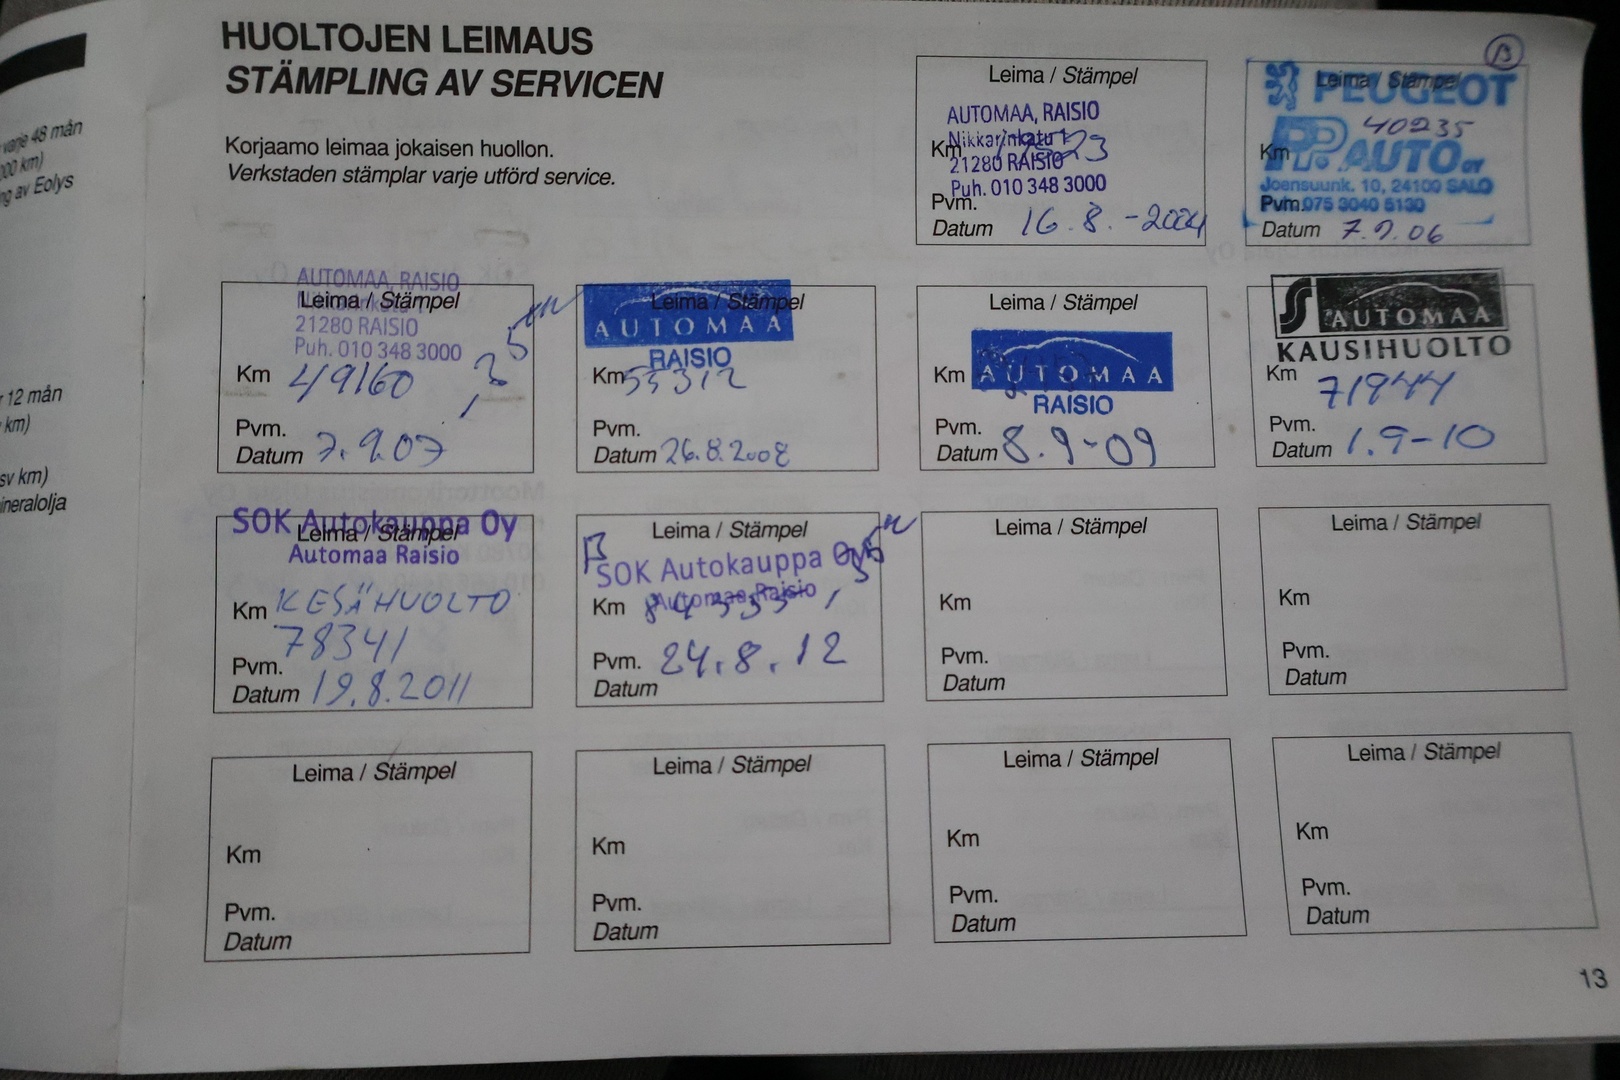 varje 48 mån
000 km)
ng av Eolys
12 mån
km)
sv km)
ineralolja
HUOLTOJEN LEIMAUS
STÄMPLING AV SERVICEN
Korjaamo leimaa jokaisen huollon.
Verkstaden stämplar varje utförd service.
Leima / Stämpel
AUTOMAA, RAISIO
Nikkarinkatu 1
Km
21280 RAISIO
Puh. 010 348 3000
Pvm.
Datum 16.8.-2004
B
Leima / Stämpel
PEUGEOT
40235
Km PP. AUTO OY
Joensuunk. 10, 24100 SALO
Pvm. 075 3040 5130
Datum 7.9.06
AUTOMAA, RAISIO
Leima / Stämpel
Nikkarinkatu 1
21280 RAISIO
Puh. 010 348 3000
Km 49160
Pvm.
Datum 7.9.07
Leima / Stämpel
AUTOMAA
RAISIO
Km 55312
Pvm.
Datum 26.8.2008
Leima / Stämpel
Km AUTOMAA
RAISIO
Pvm.
Datum 8.9-09
AUTOMAA
KAUSIHUOLTO
Km 71944
Pvm.
Datum 1.9-10
SOK Autokauppa Oy
Leima / Stämpel
Automaa Raisio
Km KESÄHUOLTO
78341
Pvm.
Datum 19.8.2011
Leima / Stämpel
SOK Autokauppa Oy
Automaa Raisio
Km 84333
Pvm. 24.8.12
Datum
Leima / Stämpel
Km
Pvm.
Datum
Leima / Stämpel
Km
Pvm.
Datum
Leima / Stämpel
Km
Pvm.
Datum
Leima / Stämpel
Km
Pvm.
Datum
Leima / Stämpel
Km
Pvm.
Datum
Leima / Stämpel
Km
Pvm.
Datum
13